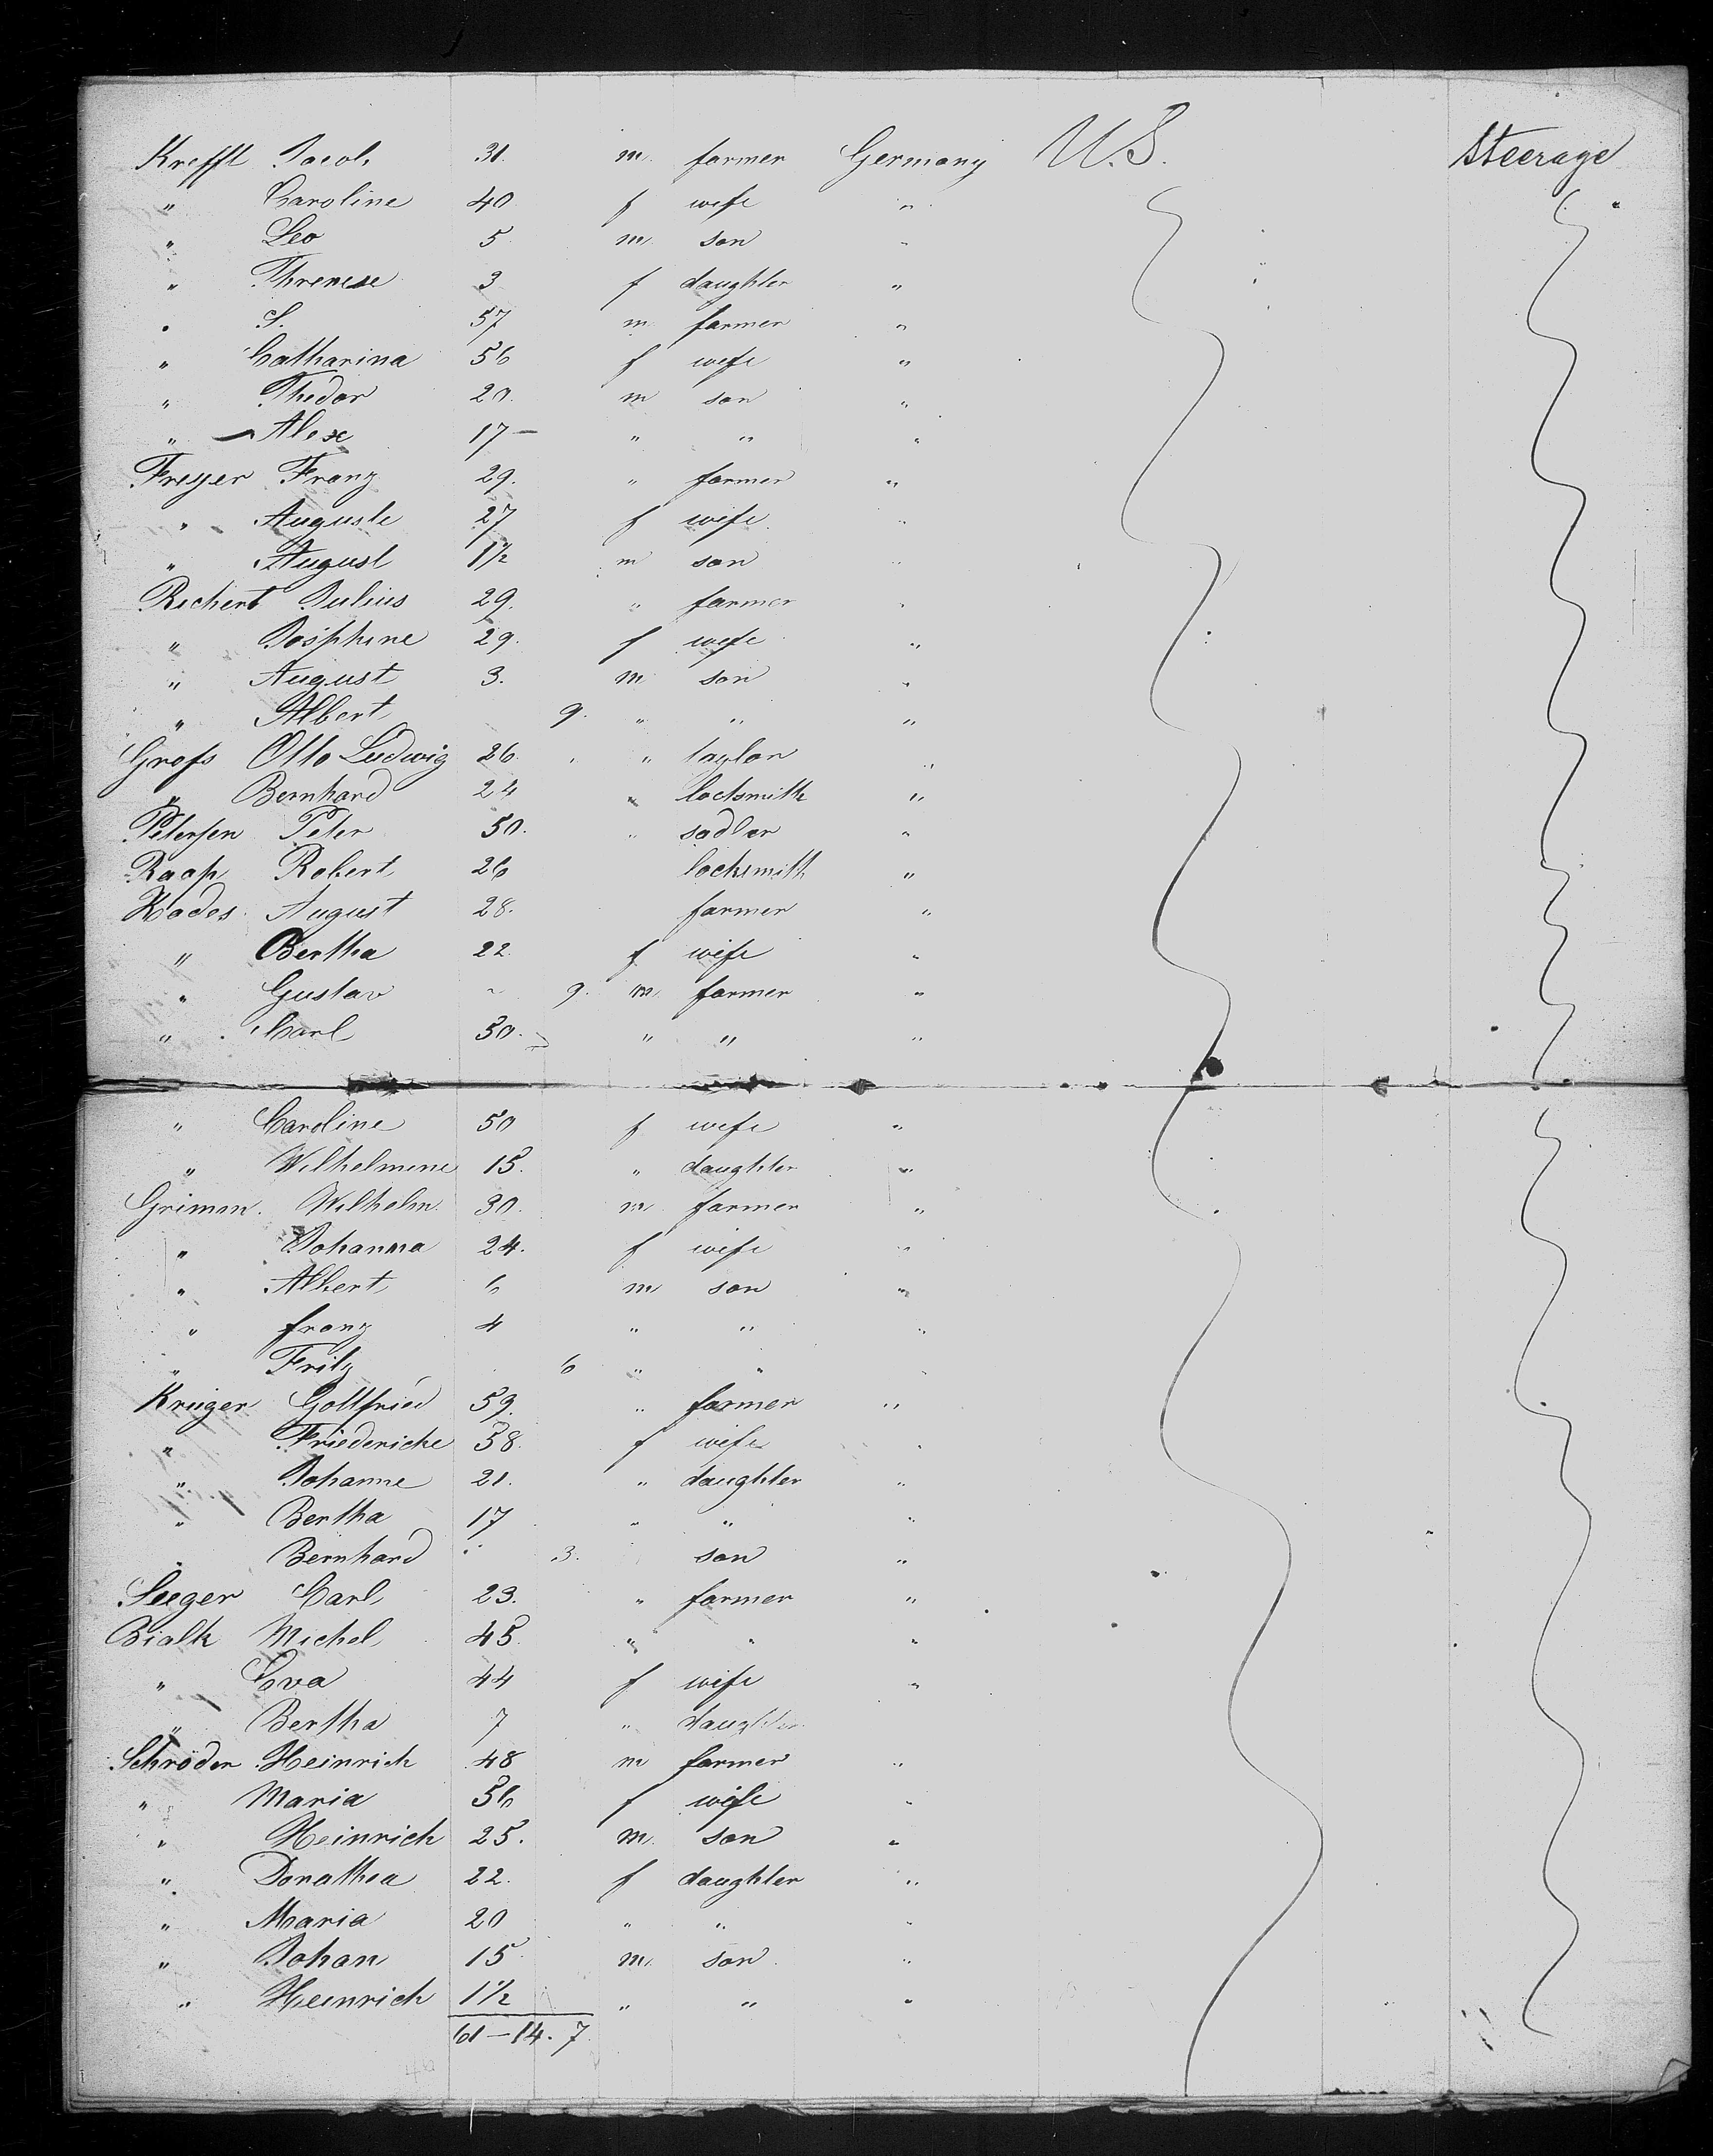 Krefft Jacob 31. m. farmer Germany U.S. Steerage
" Caroline 40 f wife "
" Leo 5 m son "
" Threnese 3 f daughter "
" S. 57 m farmer "
" Catharina 56 f wife "
" Thedor 20. m son "
" Alex 17 — " " "
Freyer Franz 29. " farmer "
" Auguste 27 f wife "
" August 1 1/2 m son "
Richert Julius 29. " farmer "
" Josphine 29. f wife "
" August 3. m son "
" Albert 9. " " "
Grofs Otto Ludwig 26 " taylor "
" Bernhard 24 " locksmith "
Petersen Peter 50. " sadler "
Raap Robert 26 locksmith "
Kades August 28. farmer "
" Bertha 22 f wife "
" Gustav 9. m farmer "
" Carl 50. " " "
" Caroline 50 f wife "
" Wilhelmine 15. " daughter "
Grimm. Wilhelm. 30. m farmer "
" Johanna 24. f wife "
" Albert 6 m son "
" franz 4 " " "
" Fritz 6 " " "
Krüger Gottfried 59. " farmer "
" Friedericke 58. f wife "
" Johanne 21. " daughter "
" Bertha 17 " " "
" Bernhard " 3. son "
Seeger Carl 23. " farmer "
Bialk Michel 45. " " "
" Eva 44 f wife "
" Bertha 7 " daughter
Schröder Heinrich 48 m farmer "
" Maria 56 f wife "
" Heinrich 25. m. son "
" Dorathea 22. f daughter "
" Maria 20 " " "
" Johan 15 m. son "
" Heinrich 1 1/2 " " "
61 — 14. 7.